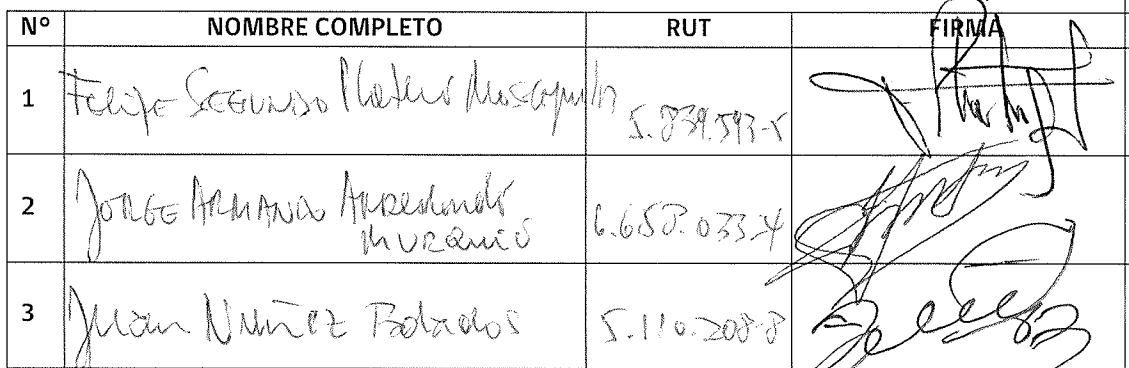 Nº NOMBRE COMPLETO RUT FIRMA
1 FELIPE SEGUNDO Mateus 5.839.593-5
2 JORGE ARMANDO Arredondo 6.658.033-4
3 Juan Nuñez Bolados 5.110.208-8